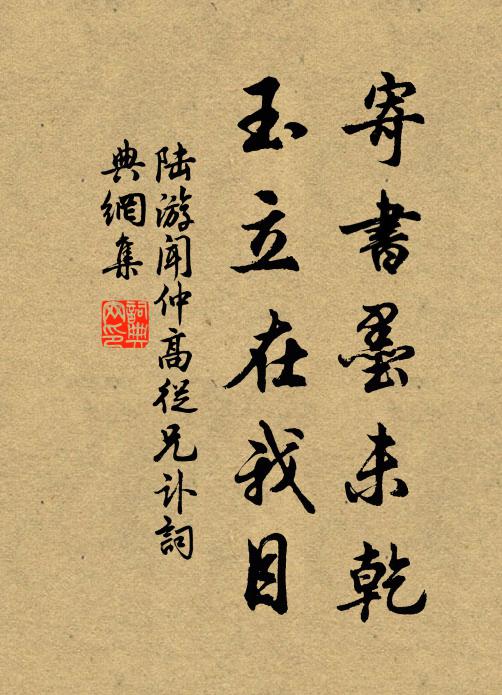 寄書墨未乾
玉立在我目
陸游聞仲高從兄訃詞
典網集
詞典
网印